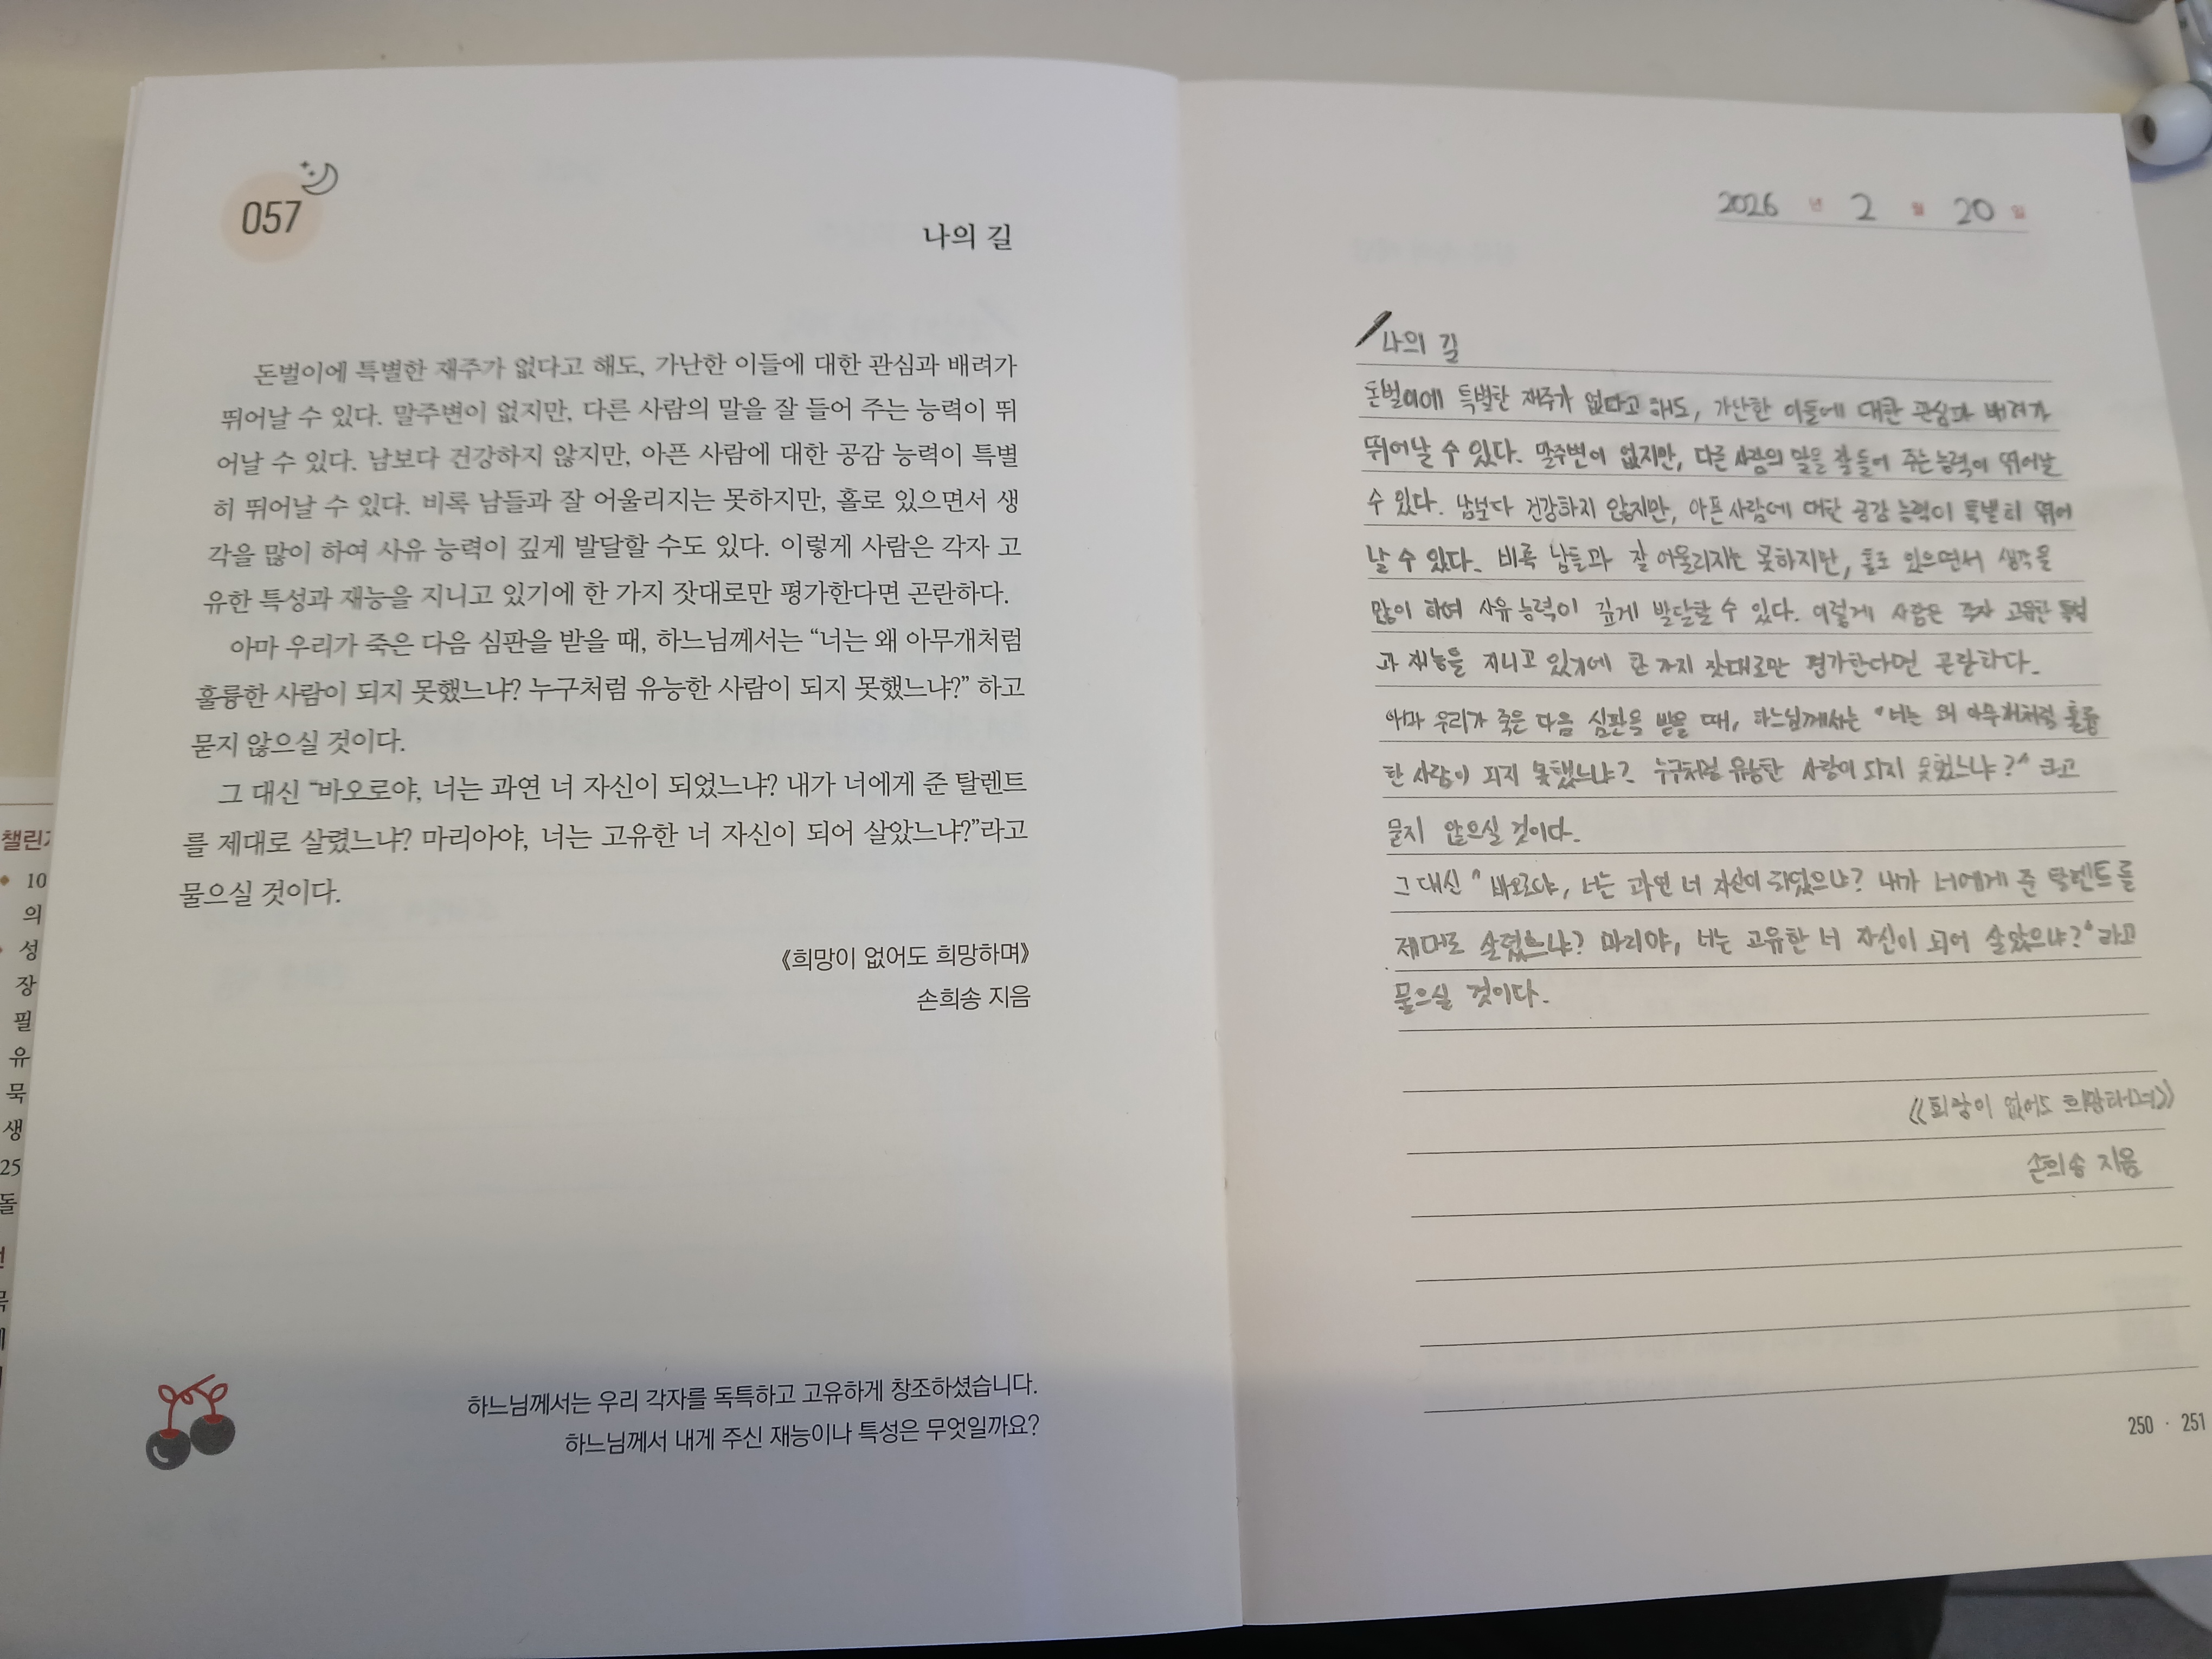 057
나의 길
돈벌이에 특별한 재주가 없다고 해도, 가난한 이들에 대한 관심과 배려가
뛰어날 수 있다. 말주변이 없지만, 다른 사람의 말을 잘 들어 주는 능력이 뛰
어날 수 있다. 남보다 건강하지 않지만, 아픈 사람에 대한 공감 능력이 특별
히 뛰어날 수 있다. 비록 남들과 잘 어울리지는 못하지만, 홀로 있으면서 생
각을 많이 하여 사유 능력이 깊게 발달할 수도 있다. 이렇게 사람은 각자 고
유한 특성과 재능을 지니고 있기에 한 가지 잣대로만 평가한다면 곤란하다.
아마 우리가 죽은 다음 심판을 받을 때, 하느님께서는 “너는 왜 아무개처럼
훌륭한 사람이 되지 못했느냐? 누구처럼 유능한 사람이 되지 못했느냐?” 하고
묻지 않으실 것이다.
그 대신 “바오로야, 너는 과연 너 자신이 되었느냐? 내가 너에게 준 탈렌트
를 제대로 살렸느냐? 마리아야, 너는 고유한 너 자신이 되어 살았느냐?”라고
물으실 것이다.
《희망이 없어도 희망하며》
손희송 지음
하느님께서는 우리 각자를 독특하고 고유하게 창조하셨습니다.
하느님께서 내게 주신 재능이나 특성은 무엇일까요?
챌린
10
의
성
장
필
유
묵
생
25
돌
2026 년 2 월 20 일
나의 길
돈벌이에 특별한 재주가 없다고 해도, 가난한 이들에 대한 관심과 배려가
뛰어날 수 있다. 말주변이 없지만, 다른 사람의 말을 잘 들어 주는 능력이 뛰어날
수 있다. 남보다 건강하지 않지만, 아픈 사람에 대한 공감 능력이 특별히 뛰어
날 수 있다. 비록 남들과 잘 어울리지는 못하지만, 홀로 있으면서 생각을
많이 하여 사유 능력이 깊게 발달할 수 있다. 이렇게 사람은 각자 고유한 특성
과 재능을 지니고 있기에 한 가지 잣대로만 평가한다면 곤란하다.
아마 우리가 죽은 다음 심판을 받을 때, 하느님께서는 "너는 왜 아무개처럼 훌륭
한 사람이 되지 못했느냐? 누구처럼 유능한 사람이 되지 못했느냐?" 하고
묻지 않으실 것이다.
그 대신 "바오로야, 너는 과연 너 자신이 되었으냐? 내가 너에게 준 탈렌트를
제대로 살렸느냐? 마리야, 너는 고유한 너 자신이 되어 살았으냐?"라고
물으실 것이다.
《희망이 없어도 희망하며》
손희송 지음
250 · 251